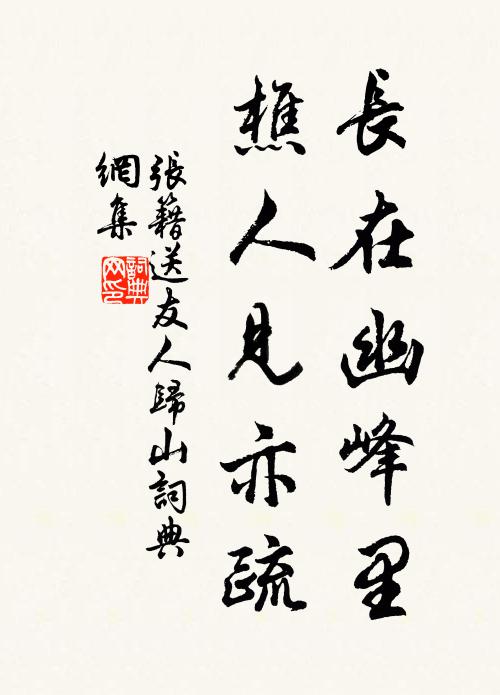 長在幽峰里
樵人見亦疏
張籍送友人歸山詞典
網集
詞典
网印